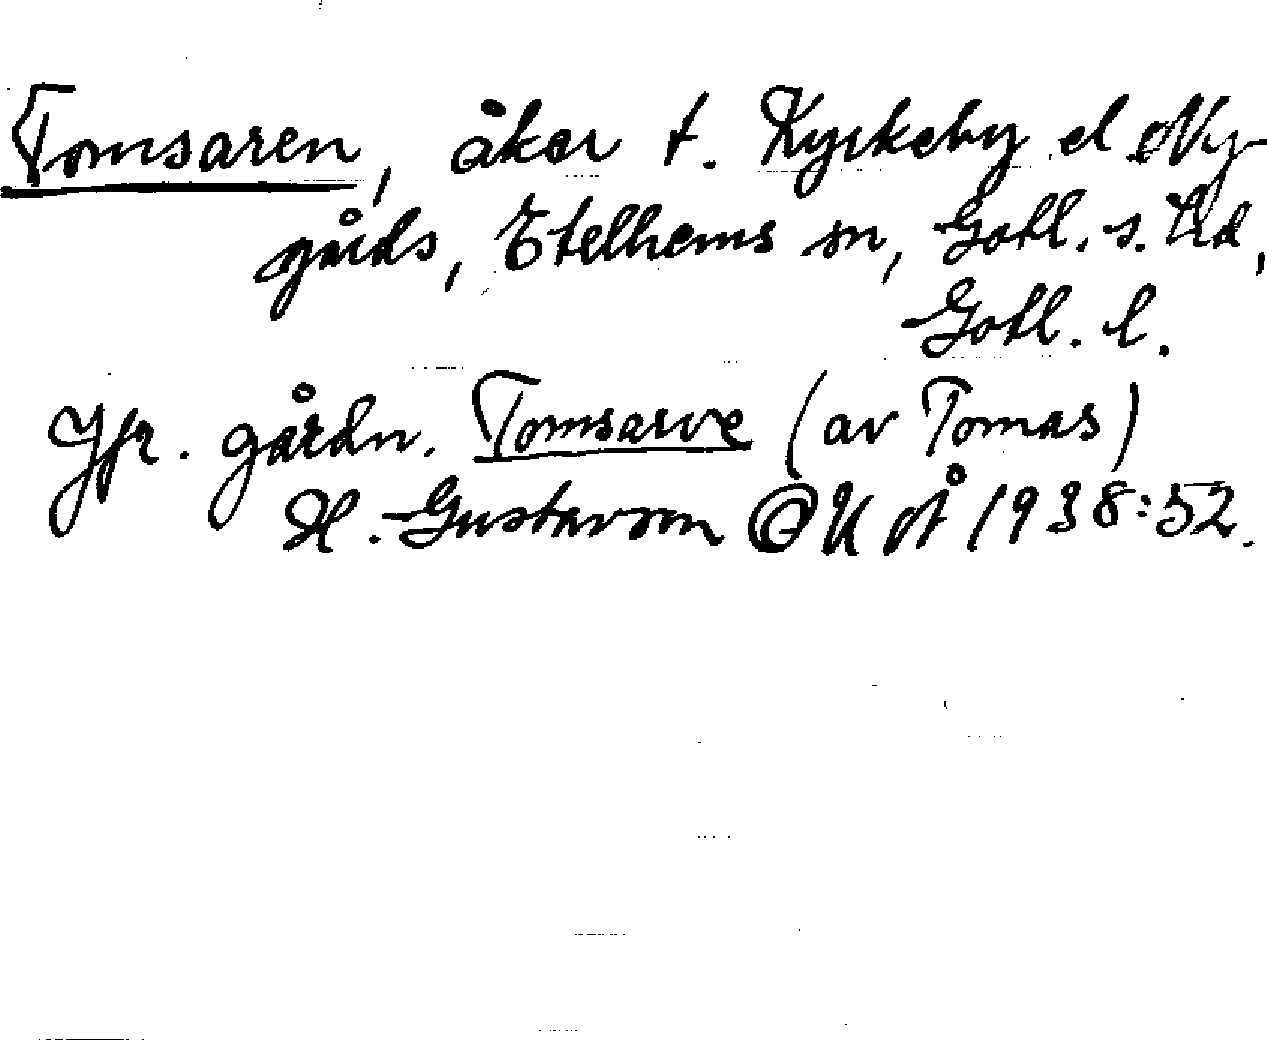 Tomsaren, åker t. Kyrkeby el Ny-
gårds, Etelhems sn, Gotl. s. hd,
Gotl. l.
Jfr. gårdn. Tomsarve (av Tomas)
H. Gustavson OUÅ 1938:52.